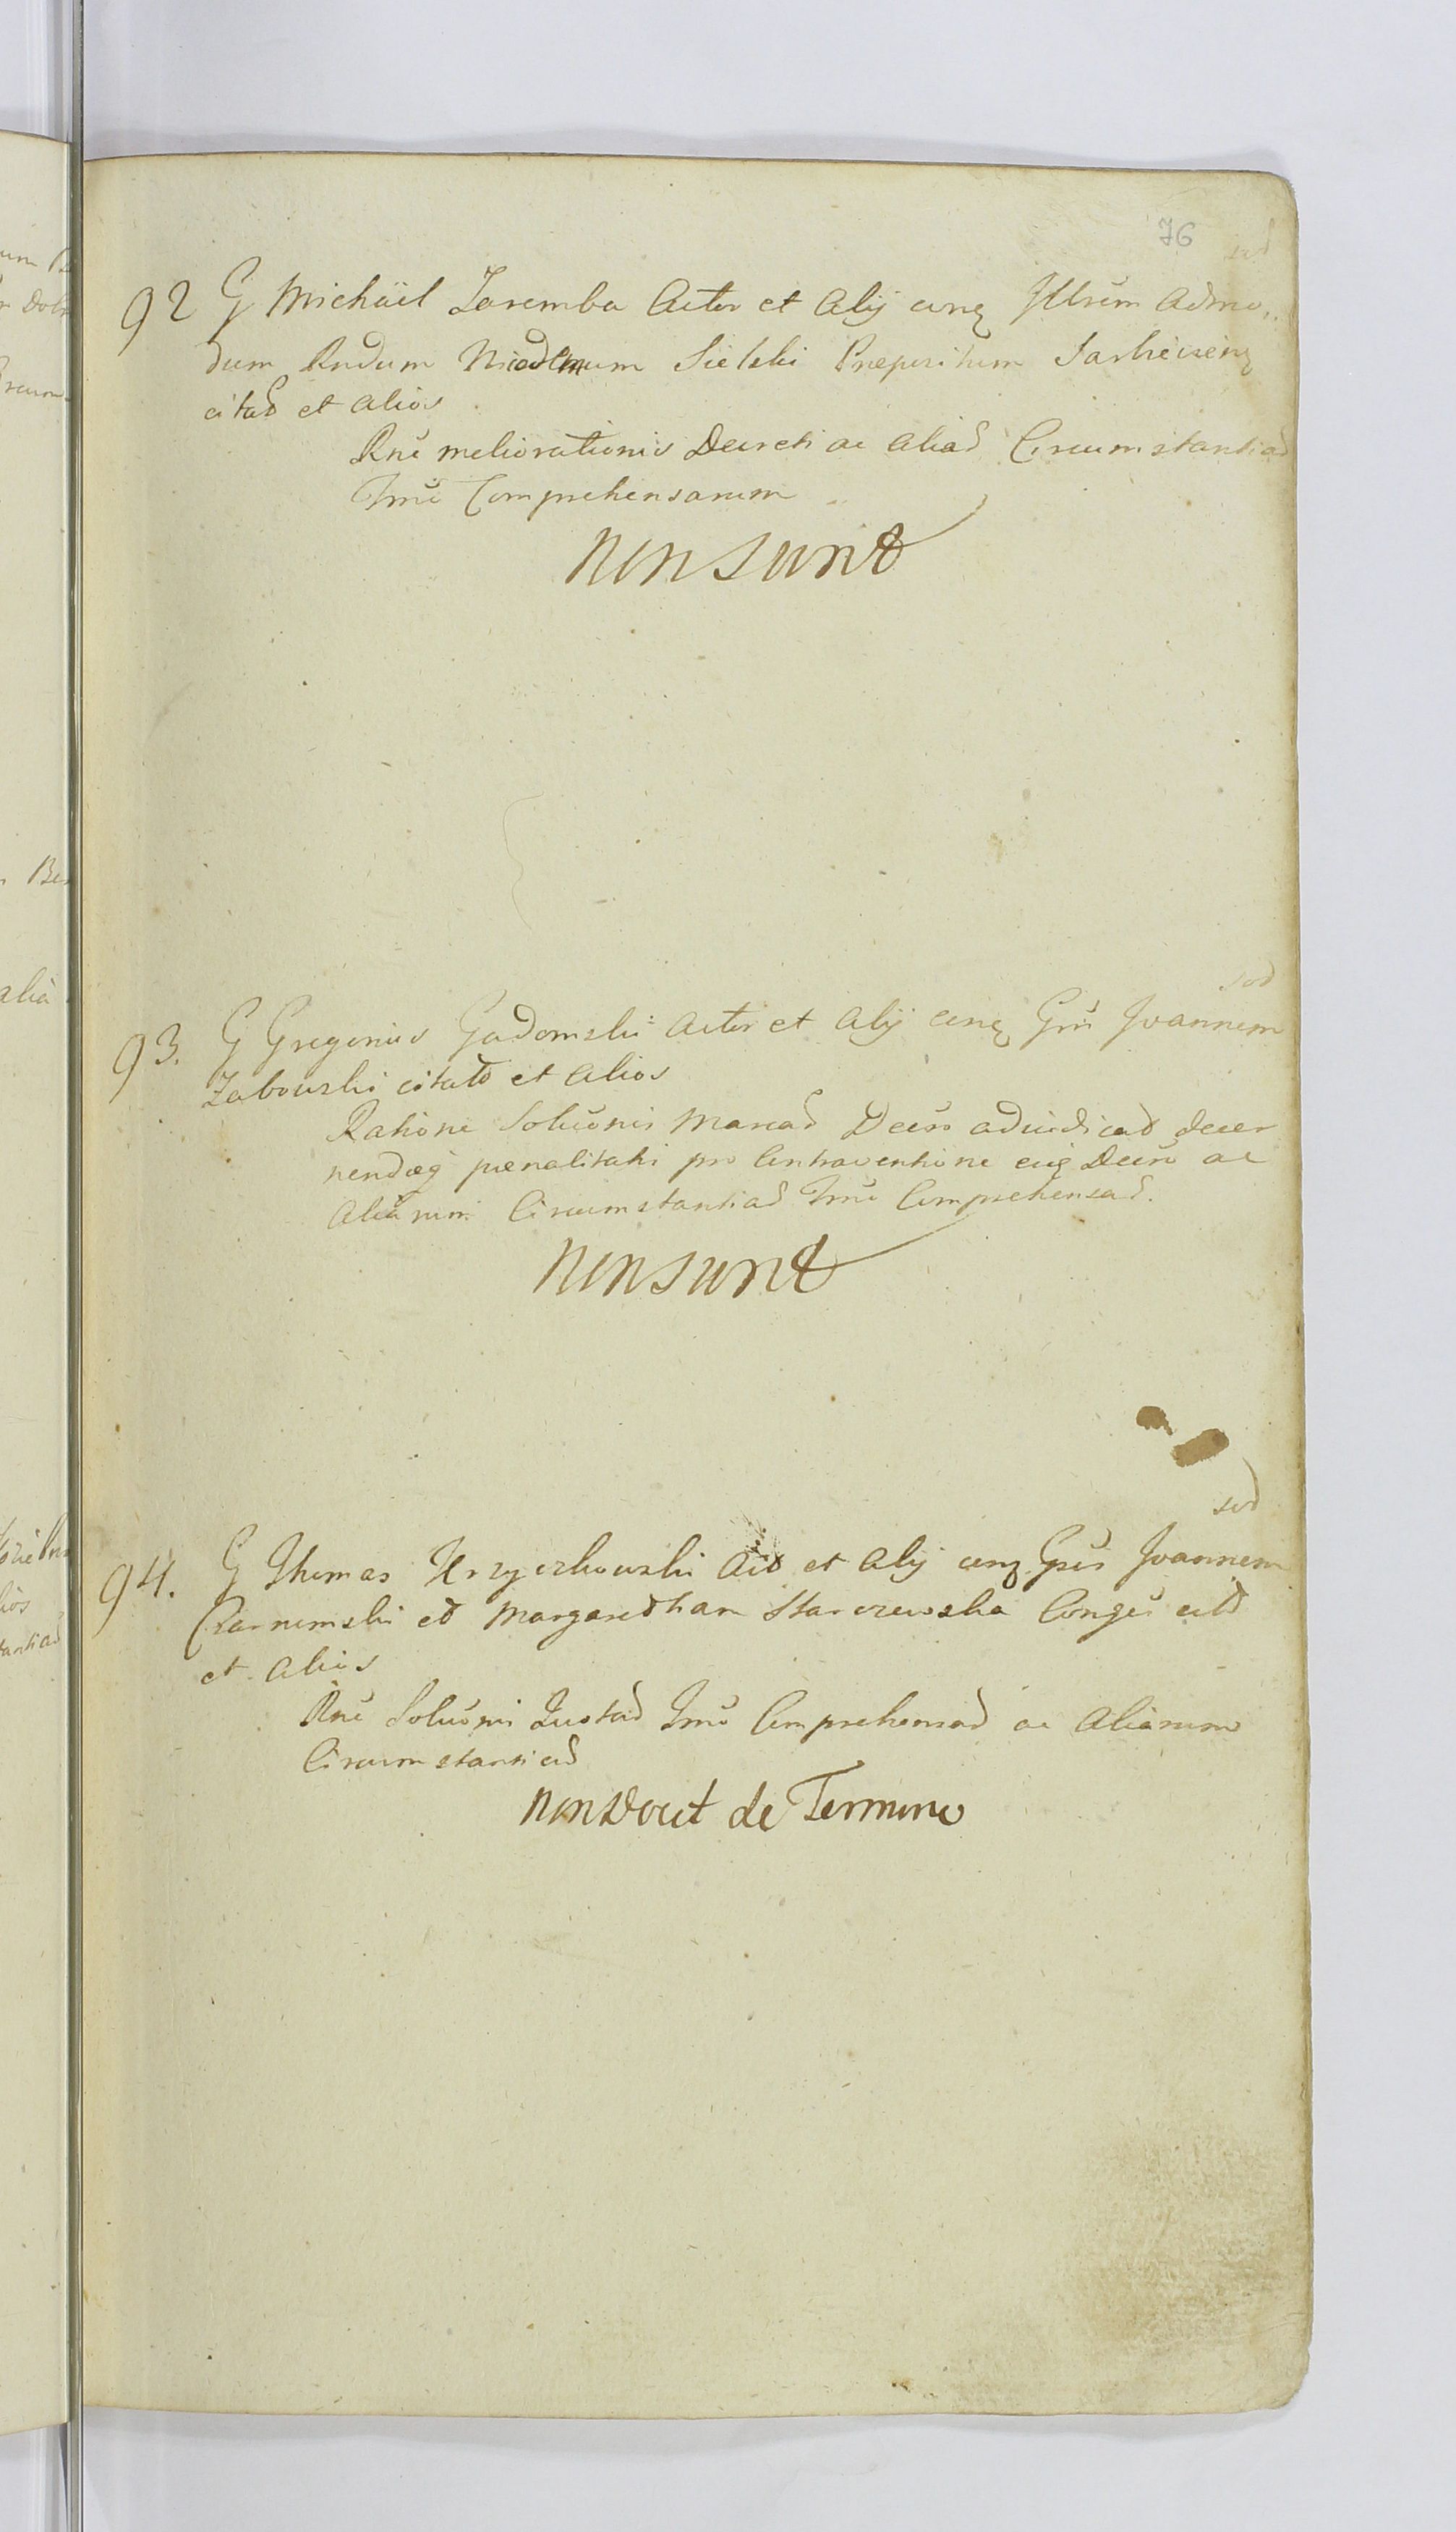 76
sod
92 G Michäel Zaremba Actor et Alÿ cnq Illrem Admo„
dum Rndum Nicodemum Sielski Prepositum
citad et alios
Rne meliorationis Decreti ac aliad Circumstantiad
Tmo Comprehensarum
non sunt
sod
93. G Gregorius Gadomski Actor et Alÿ cnq Grm Joannem
Zabowski citatd et alios
Rahone Soluonis Marcad Decro adiudicad decer
nendæq pœnalitatis pro Contraventione eiq Decro ac
aliarum Circumstantiad Tmo Comprehensad.
non sunt
sod
94. G Thomas Krzyczkowski Actd et Alÿ cnq Gros Joannem
Czarnomski et Margaretham Starczewska Conges citd
et alios
Rne Soluonis Quotad Tmo Comprehensad ac aliarum
Circumstantiad
non docet de Termino